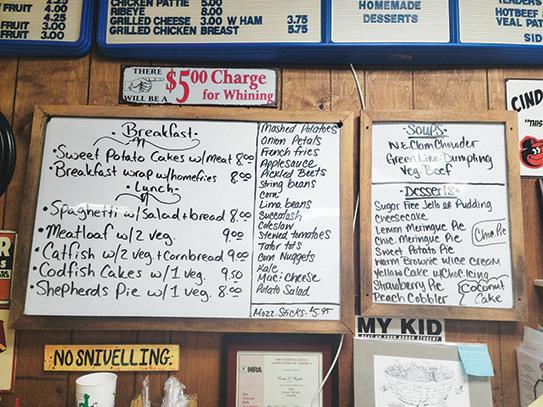 FRUIT 3.00
FRUIT 4.00
2.25
CHICKEN PATTIE 5.00
RIBEYE 8.00
GRILLED CHEESE 3.00 W HAM 3.75
GRILLED CHICKEN BREAST 5.75
HOMEMADE
DESSERTS
TENDERS
HOT BEEF
VEAL PAT
SID
THERE
WILL BE A
$5.00 Charge
for Whining
Breakfast
Sweet Potato Cakes w/meat 8.00
Breakfast wrap w/homefries 8.00
Lunch
Spaghetti w/Salad+bread 8.00
Meatloaf w/2 veg. 9.00
Catfish w/2 veg+Cornbread 9.00
Codfish Cakes w/1 veg. 9.50
Shepherds Pie w/1 veg. 8.00
Mashed Potatoes
Onion Petals
French fries
Applesauce
Pickled Beets
String beans
Corn
Lima beans
Succatash
Coleslaw
Stewed tomatoes
Tator tots
Corn Nuggets
Kale
Mac: Cheese
Potato Salad
Mozz. Sticks $5.95
Soups
N.E. Clam Chowder
Green Lima Dumpling
Veg. Beef
Desserts
Sugar Free Jello or Pudding
Cheesecake
Lemon Meringue Pie
Choc Meringue Pie
Sweet Potato Pie
Warm Brownie w/Ice Cream
Yellow Cake w/Choc Icing
Strawberry Pie
Peach Cobbler
Coconut
Cake
CIND
"THIS
NO SNIVELLING
NRA
MY KID